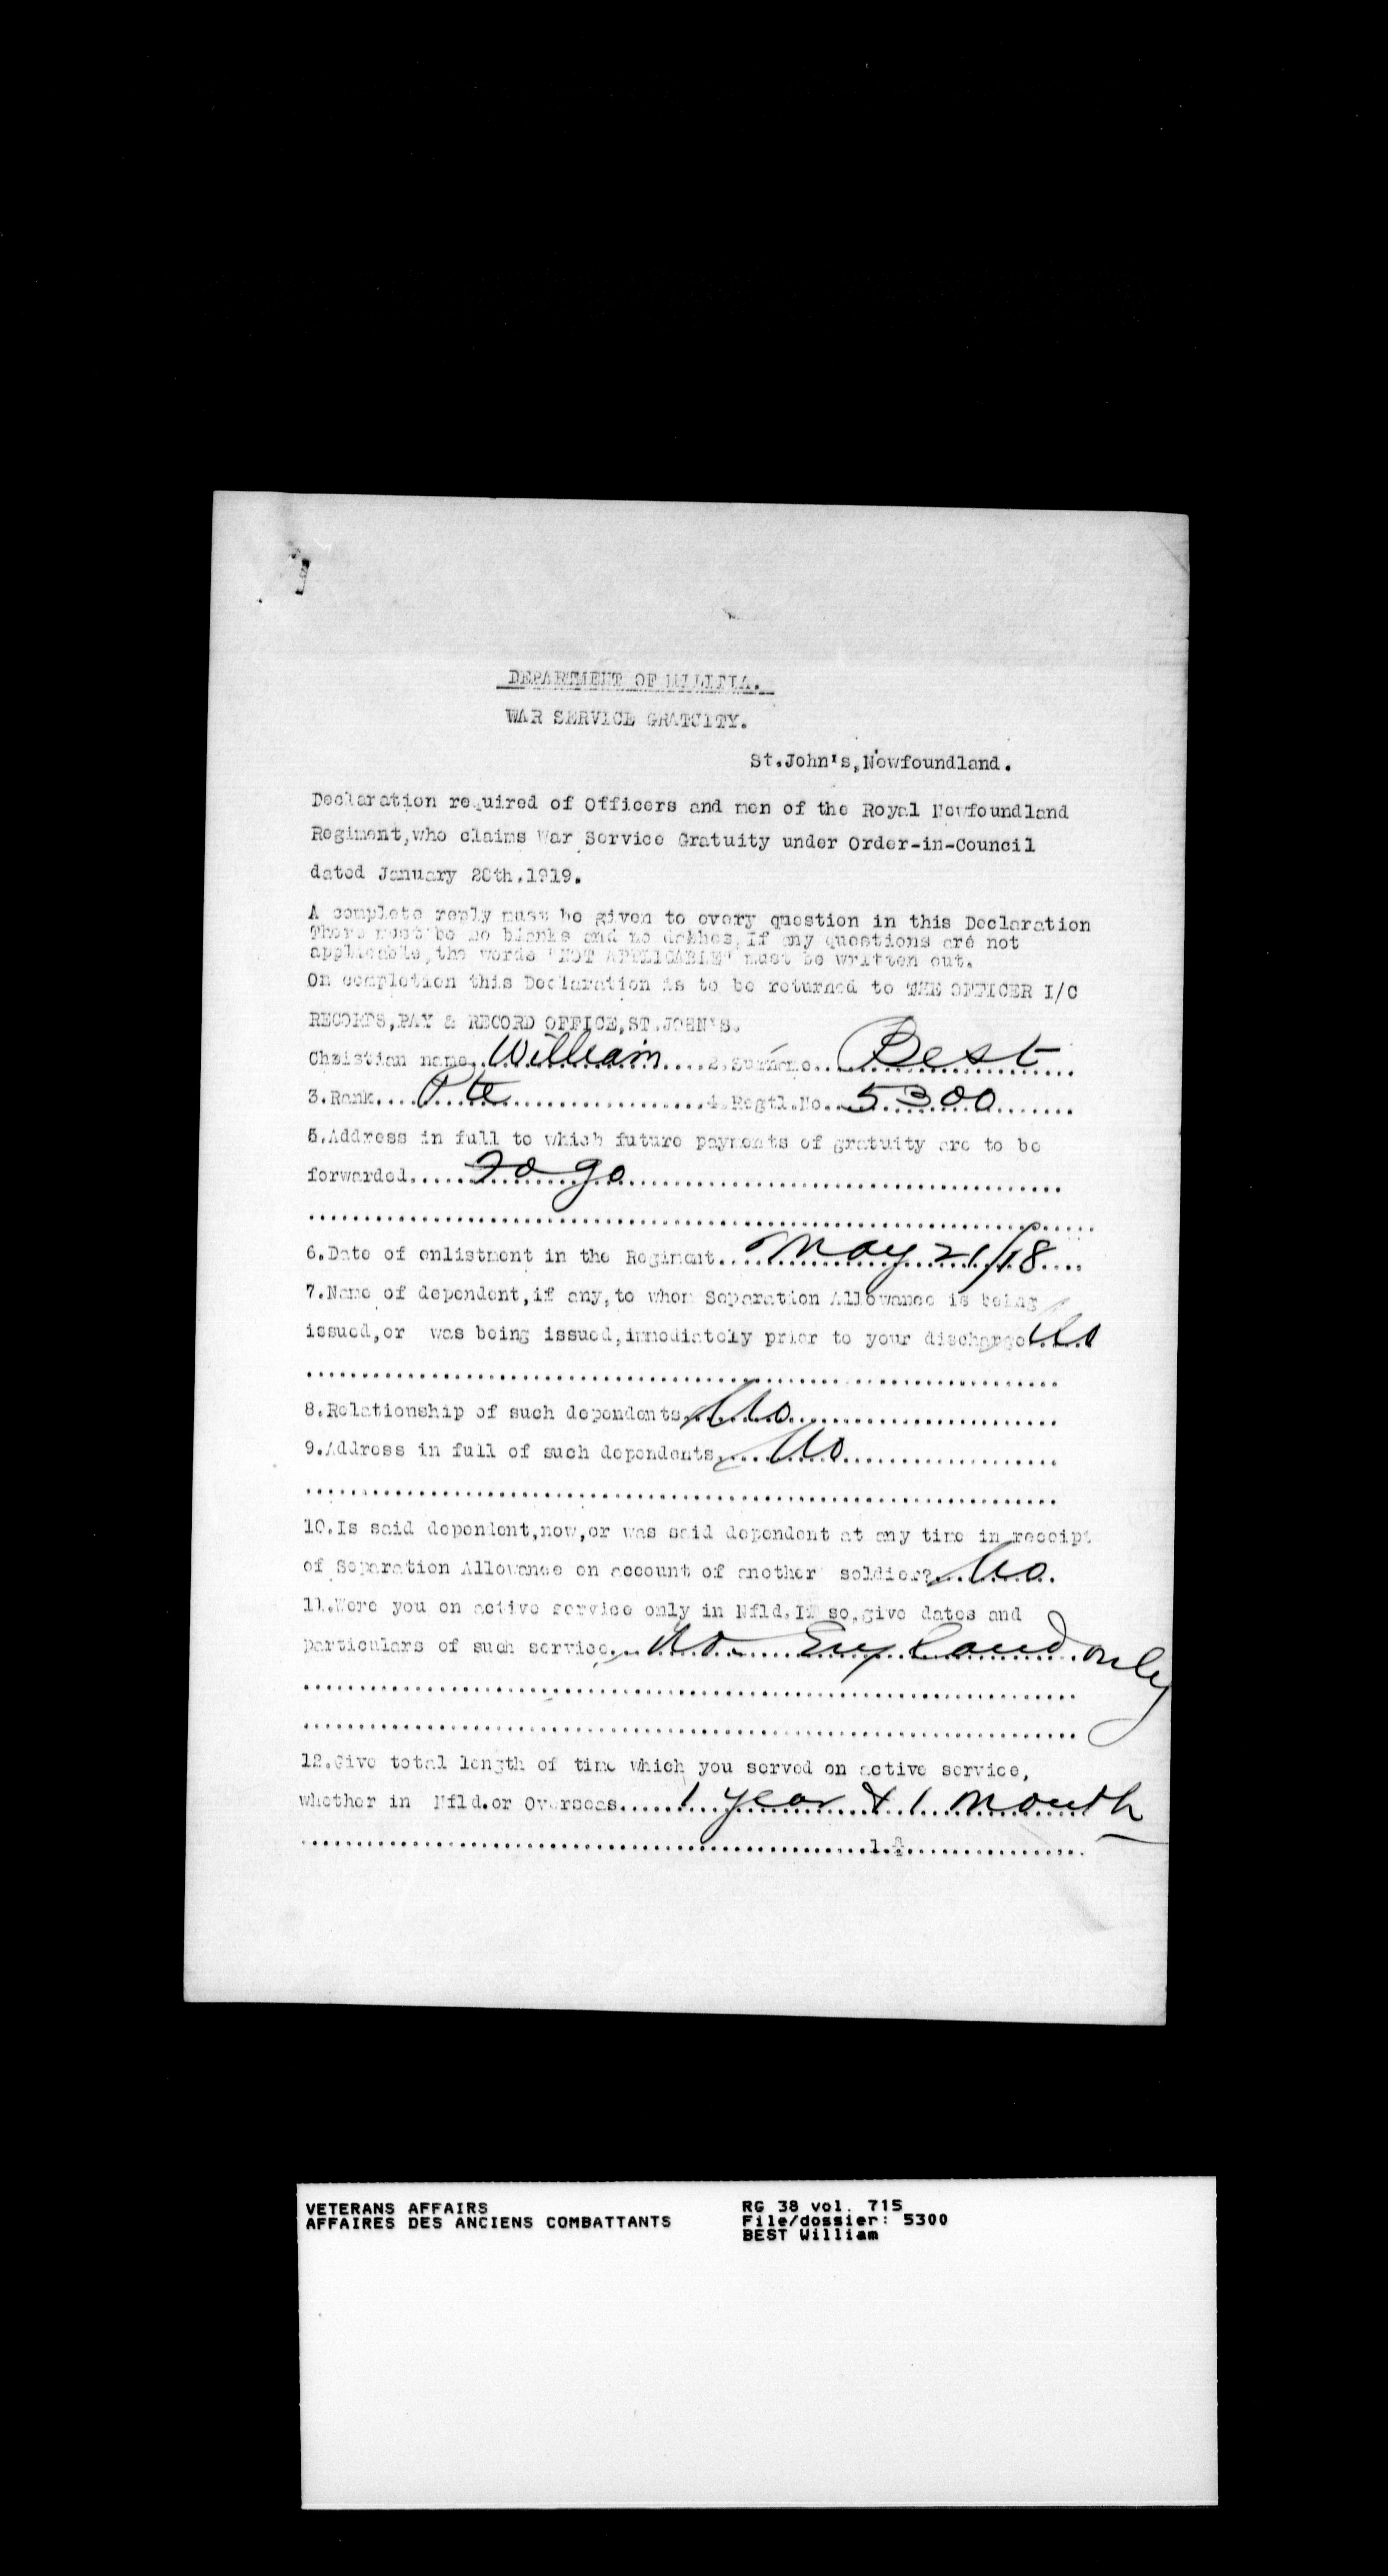 DEPARTMENT OF MILITIA.
WAR SERVICE GRATUITY.
St.John's,Newfoundland.
Declaration required of Officers and men of the Royal Newfoundland
Regiment,who claims War Service Gratuity under Order-in-Council
dated January 28th.1919.
A complete reply must be given to every question in this Declaration
There must be no blanks and no dashes,If any questions are not
applicable,the words "NOT APPLICABLE" must be written out.
On completion this Declaration is to be returned to THE OFFICER I/C
RECORDS,PAY & RECORD OFFICE,ST.JOHN'S.
Christian name..William....2.Surname..Best....
3.Rank....Pte....4.Regtl.No..5300....
5.Address in full to which future payments of gratuity are to be
forwarded....Fogo....
6.Date of enlistment in the Regiment..May 21/18....
7.Name of dependent,if any,to whom Separation Allowance is being
issued,or was being issued,immediately prior to your discharge..No
8.Relationship of such dependents..No....
9.Address in full of such dependents...No....
10.Is said dependent,now,or was said dependent at any time in receipt
of Separation Allowance on account of another soldier?..No.
11.Were you on active service only in Nfld.If so,give dates and
particulars of such service..No. England only
12.Give total length of time which you served on active service,
whether in Nfld.or Overseas....1 year & 1 month
VETERANS AFFAIRS
AFFAIRES DES ANCIENS COMBATTANTS
RG 38 vol. 715
File/dossier: 5300
BEST William